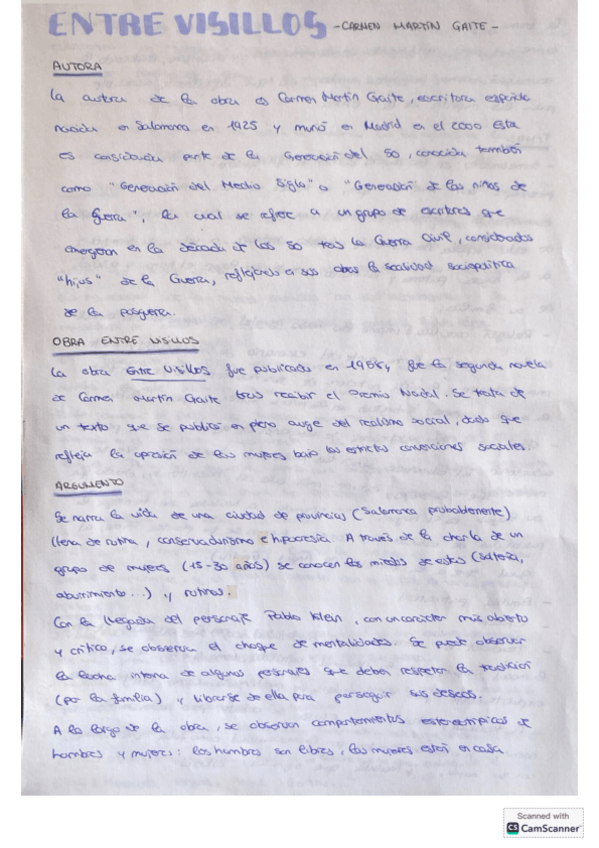 ENTRE VISILLOS - CARMEN MARTÍN GAITE -
AUTORA
La autora de la obra es Carmen Martín Gaite, escritora española
nacida en Salamanca en 1925 y murió en Madrid en el 2000. Esta
es considerada parte de la Generación del 50, conocida también
como "Generación del Medio Siglo" o "Generación de los niños de
la guerra", la cual se refiere a un grupo de escritores que
emergieron en la década de los 50 tras la Guerra Civil, considerados
"hijos" de la Guerra, reflejando en sus obras la realidad sociopolítica
de la posguerra.
OBRA ENTRE VISILLOS
La obra Entre Visillos, fue publicada en fue la segunda novela
de Carmen Martín Gaite tras recibir el Premio Nadal. Se trata de
un texto que se publica en pleno auge del realismo social, dado que
refleja la opresión de las mujeres bajo las estrictas convenciones sociales.
ARGUMENTO
Se narra la vida de una ciudad de provincias (Salamanca probablemente)
llena de rutina, conservadurismo e hipocresía. A través de la charla de un
grupo de mujeres (+15-30 años) se conocen los miedos de estas (soltería,
aburrimiento...) y rutinas.
Con la llegada del personaje Pablo Klein, con un carácter más abierto
y crítico, se observa el choque de mentalidades. Se puede observar
la lucha interna de algunos personajes que deben respetar la tradición
(por la familia) y librarse de ella para perseguir sus deseos.
A lo largo de la obra, se observan comportamientos estereotípicos de
hombres y mujeres: los hombres son libres, las mujeres están en casa.
Scanned with
CS CamScanner